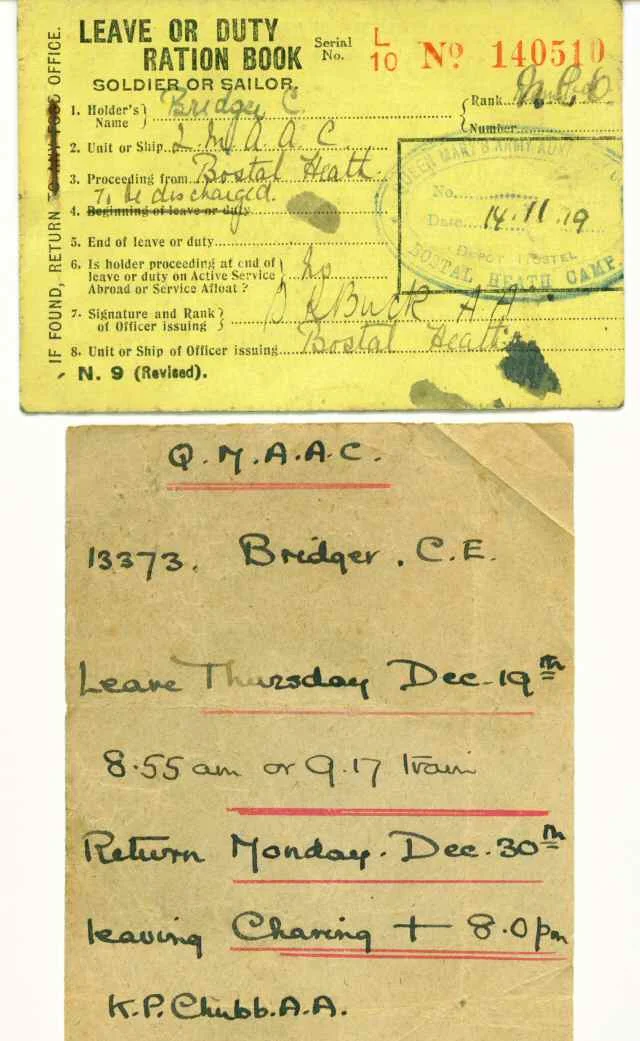 IF FOUND, RETURN TO ANY FOOD OFFICE.
LEAVE OR DUTY
RATION BOOK
SOLDIER OR SAILOR.
Serial No. L 10 No 140510
1. Holder's Name Bridger C
Rank
Number
2. Unit or Ship Q M A A C
3. Proceeding from Bostal Heath
To be discharged.
4. Beginning of leave or duty
5. End of leave or duty
6. Is holder proceeding at end of
leave or duty on Active Service
Abroad or Service Afloat? No
7. Signature and Rank
of Officer issuing Buck A A
8. Unit or Ship of Officer issuing Bostal Heath
N. 9 (Revised).
QUEEN MARY'S ARMY AUX
No.
Date 14.11.19
DEPOT HOSTEL
BOSTAL HEATH CAMP.
Q.M.A.A.C.
13373. Bridger. C.E.
Leave Thursday Dec. 19th
8.55 am or 9.17 train
Return Monday. Dec. 30th
leaving Charing + 8.0pm
K.P. Chubb. A.A.